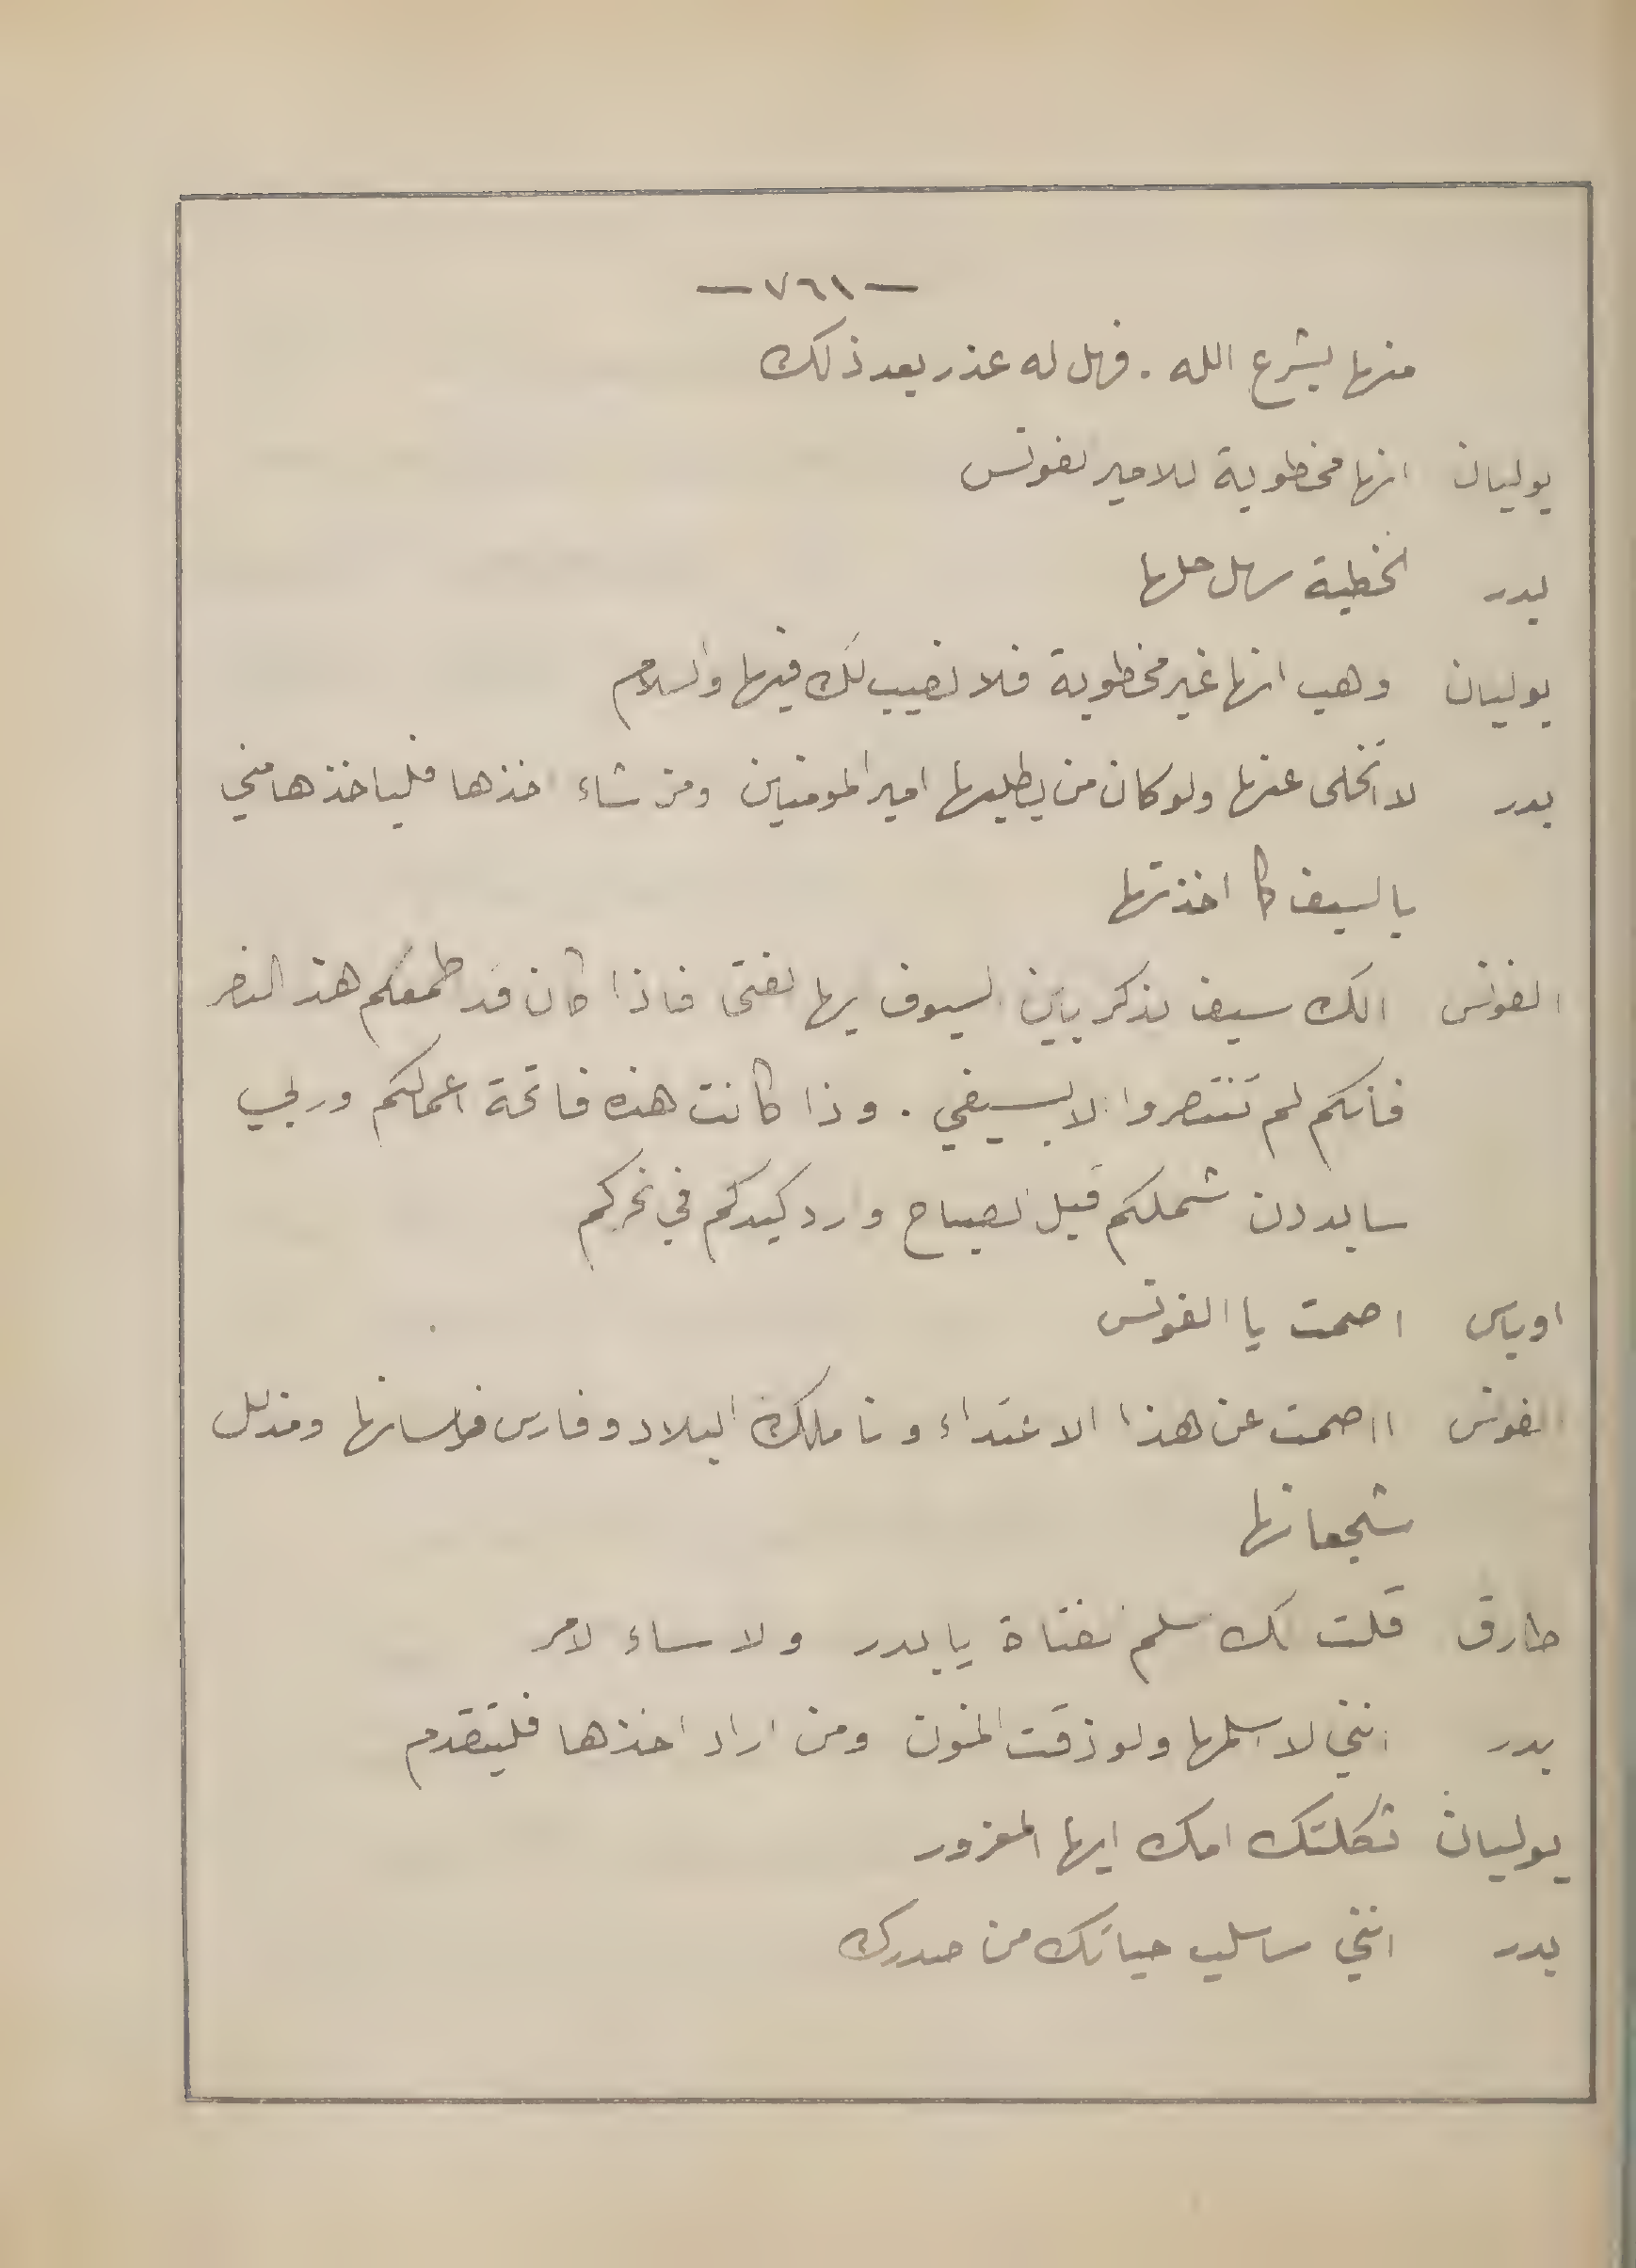 — ٧٦١ —
منها بشرع الله . فهل له عذر بعد ذلك
يوليان انها مخطوبة للامير الفونس
بدر الخطبة سهل حلها
يوليان وهب انها غير مخطوبة فلا نصيب لك فيها والسلام
بدر لا اتخلى عنها ولو كان من يطلبها امير المومنين ومن شاء اخذها فلياخذها مني
بالسيف كما اخذتها
الفونس الك سيف يذكر بين السيوف ايها الفتى فاذا كان قد طمعكم هذا النصر
فانكم لم تنتصروا الا بسيفي . واذا كانت هذه فاتحة اعمالكم وربي
سابددن شملكم قبل الصباح وارد كيدكم في نحركم
اوباس اصمت يا الفونس
الفونس ااصمت عن هذا الاعتداء وانا ملك البلاد وفارس فرسانها ومذلل
شجعانها
طارق قلت لك سلم الفتاة يا بدر والا ساء الامر
بدر انني لا اسلمها ولو ذقت المنون ومن اراد اخذها فليتقدم
يوليان ثكلتك امك ايها المغرور
بدر انني ساسلب حياتك من صدرك